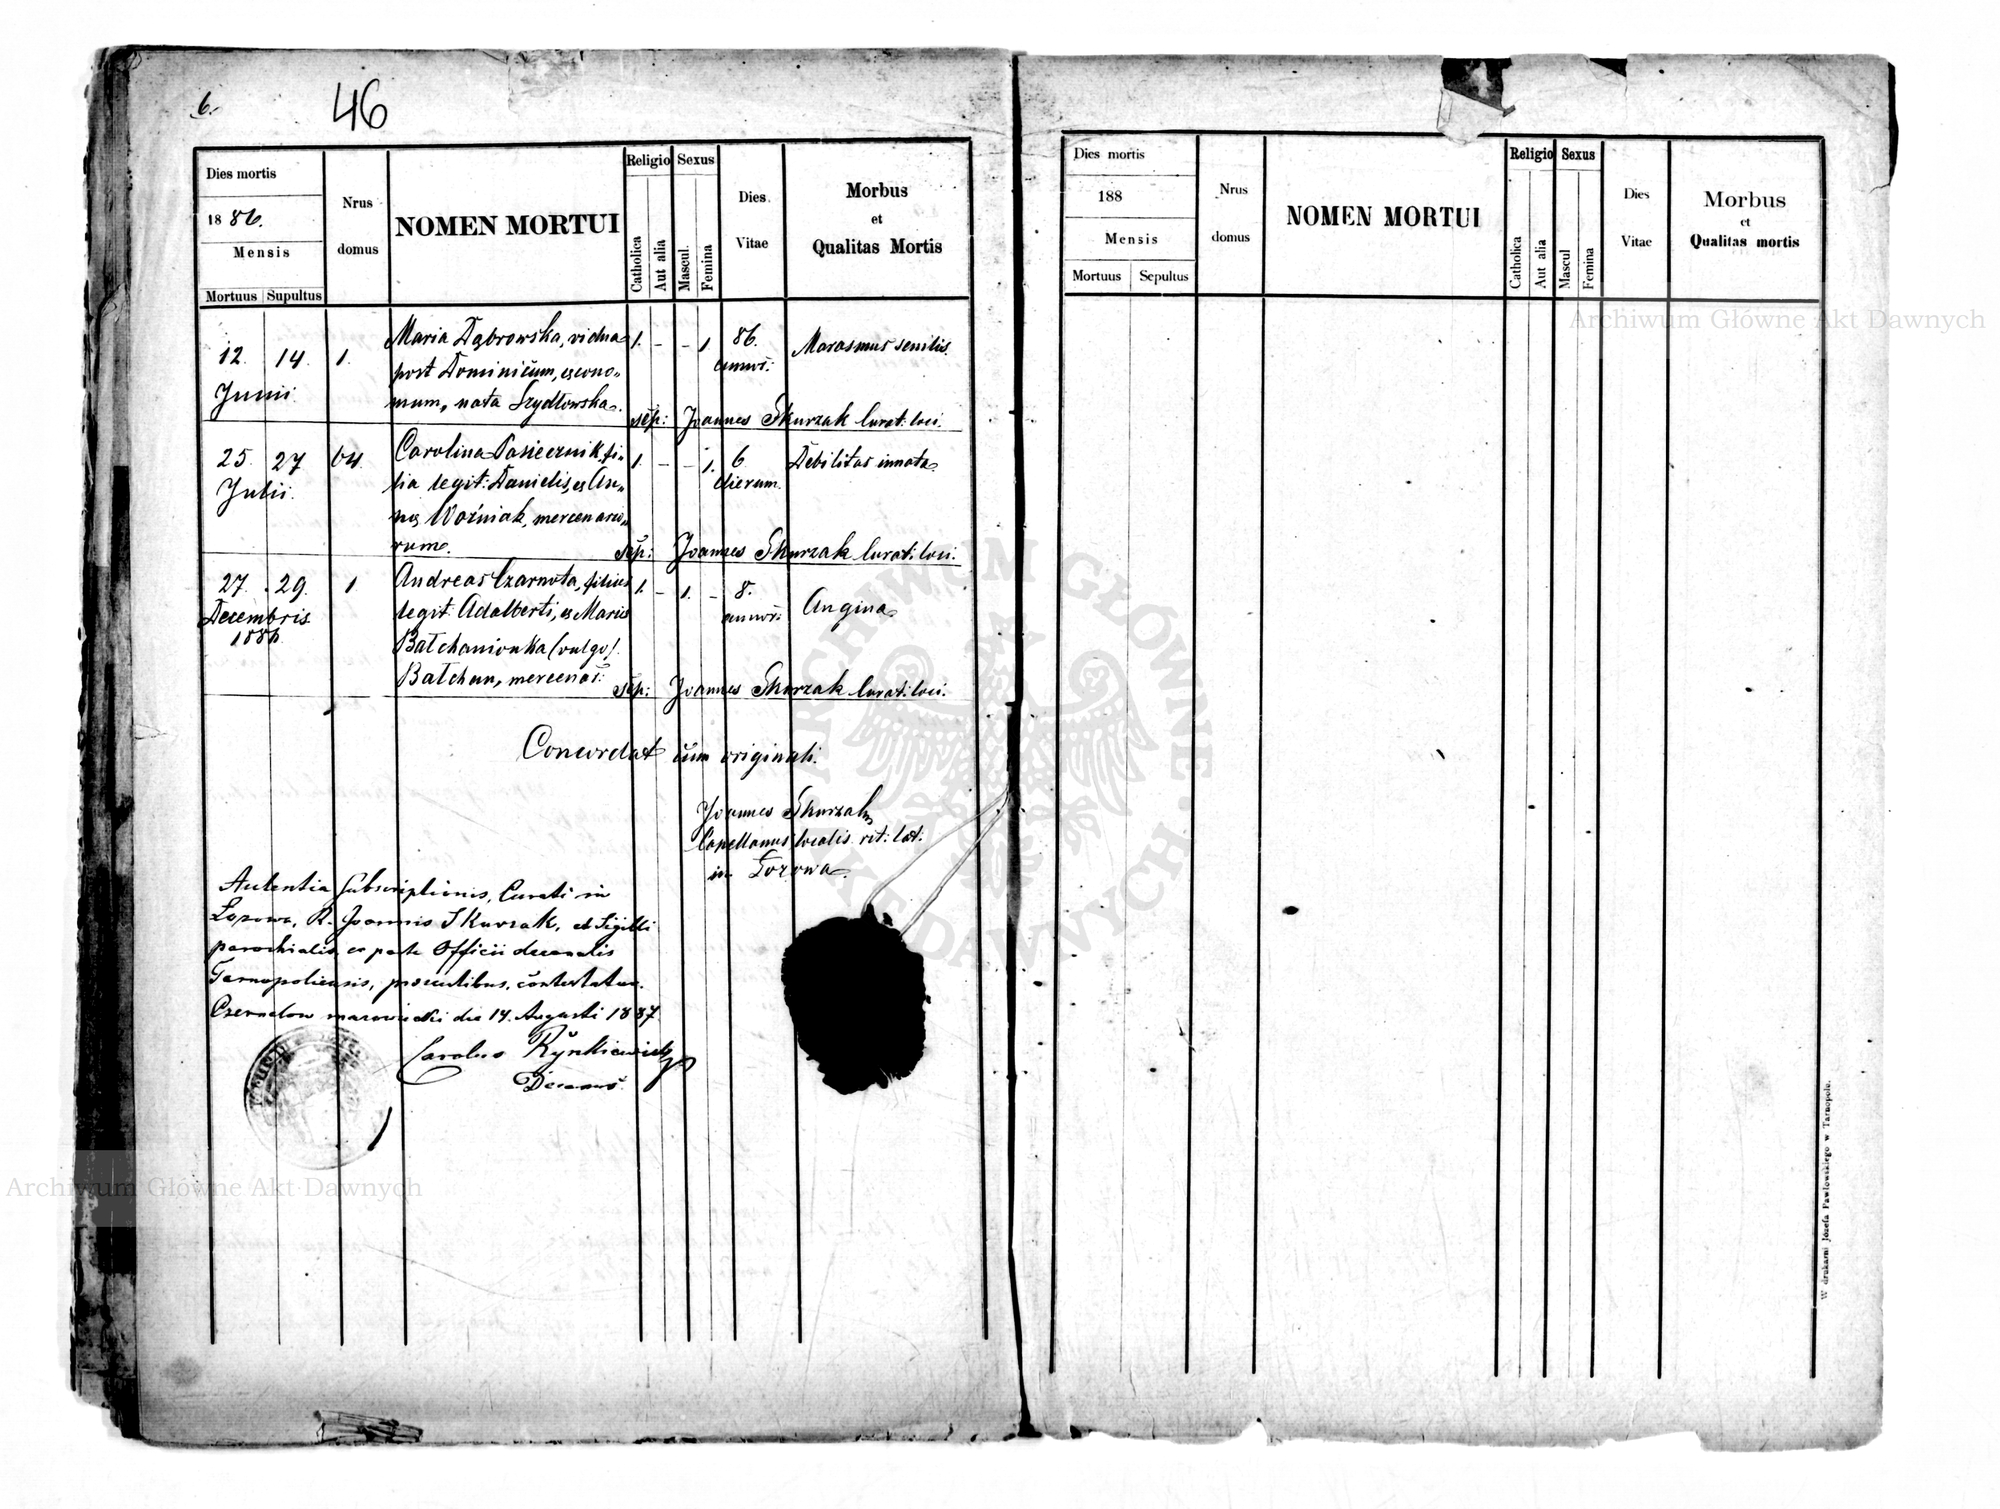 6.
46
Dies mortis
1886.
Mensis
Mortuus Supultus
Nrus
domus
NOMEN MORTUI
Religio
Catholica
Aut alia
Sexus
Mascul.
Femina
Dies
Vitae
Morbus
et
Qualitas Mortis
12. 14. 1. Maria Dąbrowska, vidua 1. - - 1 86. Marasmus senilis.
Junii post Dominicum, econo- annor:
mum, nata Szydłowska.
sep: Joannes Skurzak Curat: loci.
25. 27 64. Carolina Pasiecznik, fi- 1. - - 1. 6 Debilitas innata
Julii. lia legit: Danielis, et An- dierum.
nae Woźniak, mercenario-
rum.
sep: Joannes Skurzak Curat: loci.
27. 29. 1 Andreas Czarnota, filius 1. - 1. - 8. Angina
Decembris legit: Adalberti, et Mariae annor:
1886 Bałchanionka (vulgo)
Bałchan, mercenar:
Sep: Joannes Skurzak Curat: loci.
Concordat cum originali.
Joannes Skurzak
Capellanus localis rit: lat:
in Łozowa.
Autentia Subscriptionis, Curati in
Łozowa, R. Joannis Skurzak, et Sigilli
parochialis ex parte Officii decanalis
Tarnopoliensis, praesentibus, contestatur.
Czernelow mazowiecki die 14. Augusti 1887.
Carolus Rynkiewicz
Decanus
Dies mortis
188
Mensis
Mortuus Sepultus
Nrus
domus
NOMEN MORTUI
Religio
Catholica
Aut alia
Sexus
Mascul
Femina
Dies
Vitae
Morbus
et
Qualitas mortis
W drukarni Józefa Pawłowskiego w Tarnopolu.
Archiwum Główne Akt Dawnych
Archiwum Główne Akt Dawnych
ARCHIWUM GŁÓWNE AKT DAWNYCH